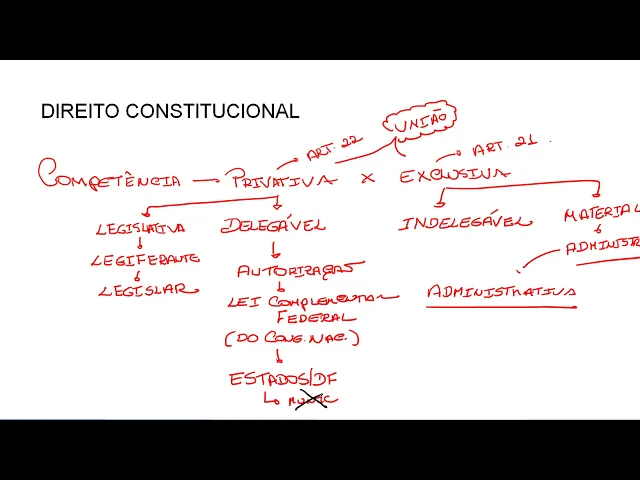 DIREITO CONSTITUCIONAL
UNIÃO
ART. 22
ART. 21
COMPETÊNCIA — PRIVATIVA x EXCLUSIVA
LEGISLATIVA
DELEGÁVEL
INDELEGÁVEL
MATERIAL
LEGIFERANTE
ADMINISTR
AUTORIZAÇÃO
LEGISLAR
LEI COMPLEMENTAR
FEDERAL
ADMINISTRATIVA
(DO CONG. NAC.)
ESTADOS/DF